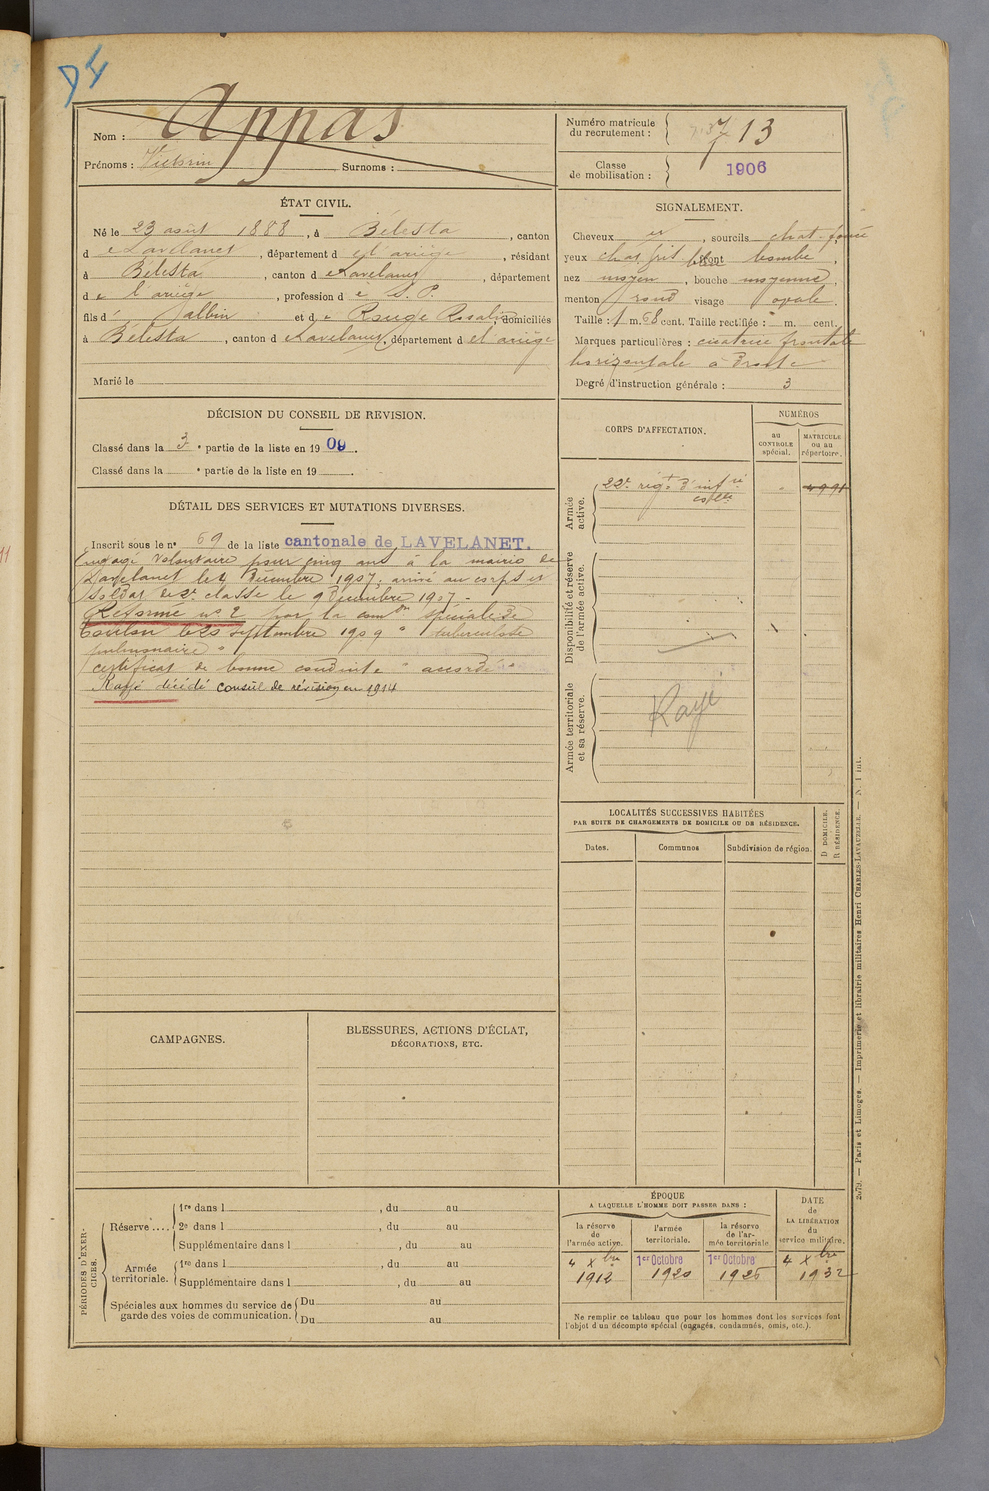 Nom : Appas
Prénoms : Victorin Surnoms :
Numéro matricule du recrutement : 713
Classe de mobilisation : 1906
ÉTAT CIVIL.
Né le 23 août 1888, à Bélesta, canton
de Lavelanet, département de l'ariège, résidant
à Bélesta, canton de Lavelanet, département
de l'ariège, profession d S. P.
fils d' Jalbin et de Rouge Rosalie, domiciliés
à Bélesta, canton de Lavelanet, département de l'ariège
Marié le
SIGNALEMENT.
Cheveux, sourcils chat. foncé
yeux chat. gris front bombé,
nez moyen, bouche moyenne,
menton rond visage ovale.
Taille : 1 m. 68 cent. Taille rectifiée : m. cent.
Marques particulières : cicatrice frontale
horizontale à Droite
Degré d'instruction générale : 3
DÉCISION DU CONSEIL DE REVISION.
Classé dans la 3e partie de la liste en 1909.
Classé dans la e partie de la liste en 19 .
DÉTAIL DES SERVICES ET MUTATIONS DIVERSES.
Inscrit sous le n° 69 de la liste cantonale de LAVELANET.
Engagé Volontaire pour cinq ans à la mairie de
Lavelanet le 4 Décembre 1907, arrivé au corps et
soldat de 2e classe le 9 Décembre 1907 -
Réformé n° 2 par la comon spéciale de
Toulon le 20 septembre 1909 " tuberculose
pulmonaire "
certificat de bonne conduite " accordé "
Rayé décédé conseil de révision en 1914
CORPS D'AFFECTATION.
NUMÉROS
au CONTROLE spécial.
MATRICULE ou au répertoire.
Armée active.
22e régt d'infrie colle
4991
Disponibilité et réserve de l'armée active.
Armée territoriale et sa réserve.
Rayé
LOCALITÉS SUCCESSIVES HABITÉES
PAR SUITE DE CHANGEMENTS DE DOMICILE OU DE RÉSIDENCE.
Dates.
Communes
Subdivision de région.
D DOMICILE.
R RÉSIDENCE.
CAMPAGNES.
BLESSURES, ACTIONS D'ÉCLAT,
DÉCORATIONS, ETC.
PÉRIODES D'EXERCICES.
Réserve....
1re dans l , du au
2e dans l , du au
Supplémentaire dans l , du au
Armée territoriale.
1re dans l , du au
Supplémentaire dans l , du au
Spéciales aux hommes du service de garde des voies de communication.
Du au
Du au
ÉPOQUE
A LAQUELLE L'HOMME DOIT PASSER DANS :
la réserve de l'armée active.
l'armée territoriale.
la réserve de l'armée territoriale
DATE de LA LIBÉRATION du service militaire.
4 Xbre 1912
1er Octobre 1920
1er Octobre 1926
4 Xbre 1932
Ne remplir ce tableau que pour les hommes dont les services font
l'objet d'un décompte spécial (engagés, condamnés, omis, etc.).
2679. — Paris et Limoges. — Imprimerie et librairie militaires Henri CHARLES-LAVAUZELLE. — N. 1 int.